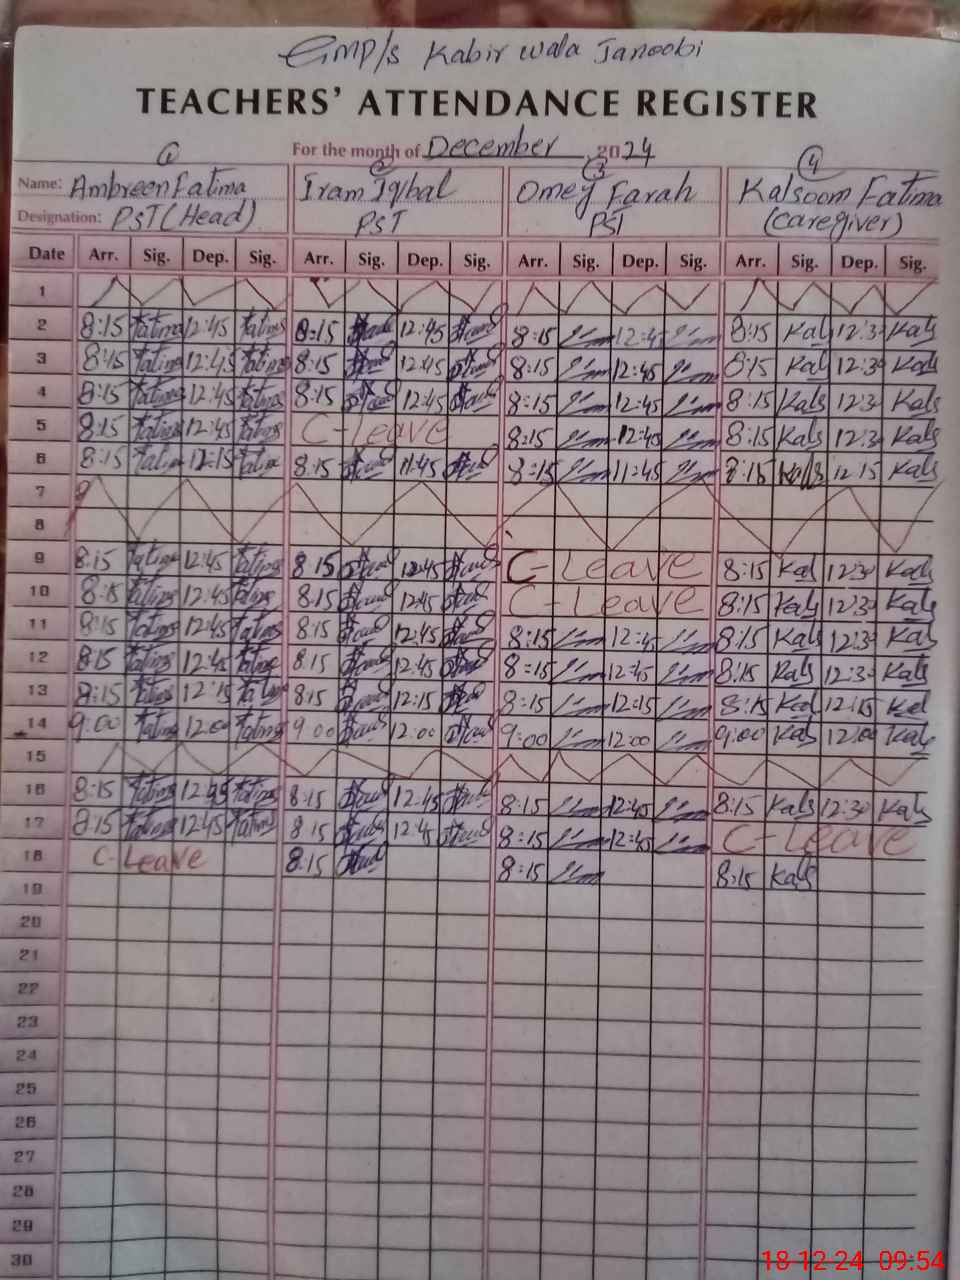 GMP/s Kabir wala Janoobi
TEACHERS' ATTENDANCE REGISTER
For the month of December 2024
① ② ③ ④
Name: Ambreen Fatima Iram Iqbal Omey Farah Kalsoom Fatima
Designation: PST (Head) PST PST (Caregiver)
Date Arr. Sig. Dep. Sig. Arr. Sig. Dep. Sig. Arr. Sig. Dep. Sig. Arr. Sig. Dep. Sig.
1
2 8:15 Fatima 12:45 Fatima 8:15 12:45 8:15 12:45 8:15 Kals 12:30 Kals
3 8:15 Fatima 12:45 Fatima 8:15 12:45 8:15 12:45 8:15 Kals 12:30 Kals
4 8:15 Fatima 12:45 Fatima 8:15 12:45 8:15 12:45 8:15 Kals 12:30 Kals
5 8:15 Fatima 12:45 Fatima C-Leave 8:15 12:45 8:15 Kals 12:30 Kals
6 8:15 Fatima 12:15 Fatima 8:15 11:45 8:15 11:45 8:15 Kals 12:15 Kals
7
8
9 8:15 Fatima 12:45 Fatima 8:15 12:45 C-Leave 8:15 Kals 12:30 Kals
10 8:15 Fatima 12:45 Fatima 8:15 12:45 C-Leave 8:15 Kals 12:30 Kals
11 8:15 Fatima 12:45 Fatima 8:15 12:45 8:15 12:45 8:15 Kals 12:30 Kals
12 8:15 Fatima 12:45 Fatima 8:15 12:45 8:15 12:45 8:15 Kals 12:30 Kals
13 8:15 Fatima 12:15 Fatima 8:15 12:15 8:15 12:15 8:15 Kals 12:15 Kals
14 9:00 Fatima 12:00 Fatima 9:00 12:00 9:00 12:00 9:00 Kals 12:00 Kals
15
16 8:15 Fatima 12:45 Fatima 8:15 12:45 8:15 12:45 8:15 Kals 12:30 Kals
17 8:15 Fatima 12:45 Fatima 8:15 12:45 8:15 12:45 C-Leave
18 C-Leave 8:15 8:15 8:15 Kals
19
20
21
22
23
24
25
26
27
28
29
30
18 12 24 09:54